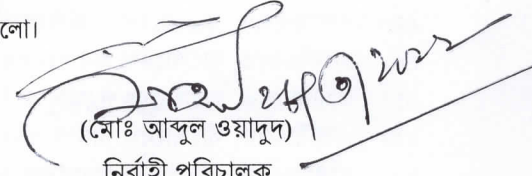 লো।
(মোঃ আব্দুল ওয়াদুদ)
নির্বাহী পরিচালক